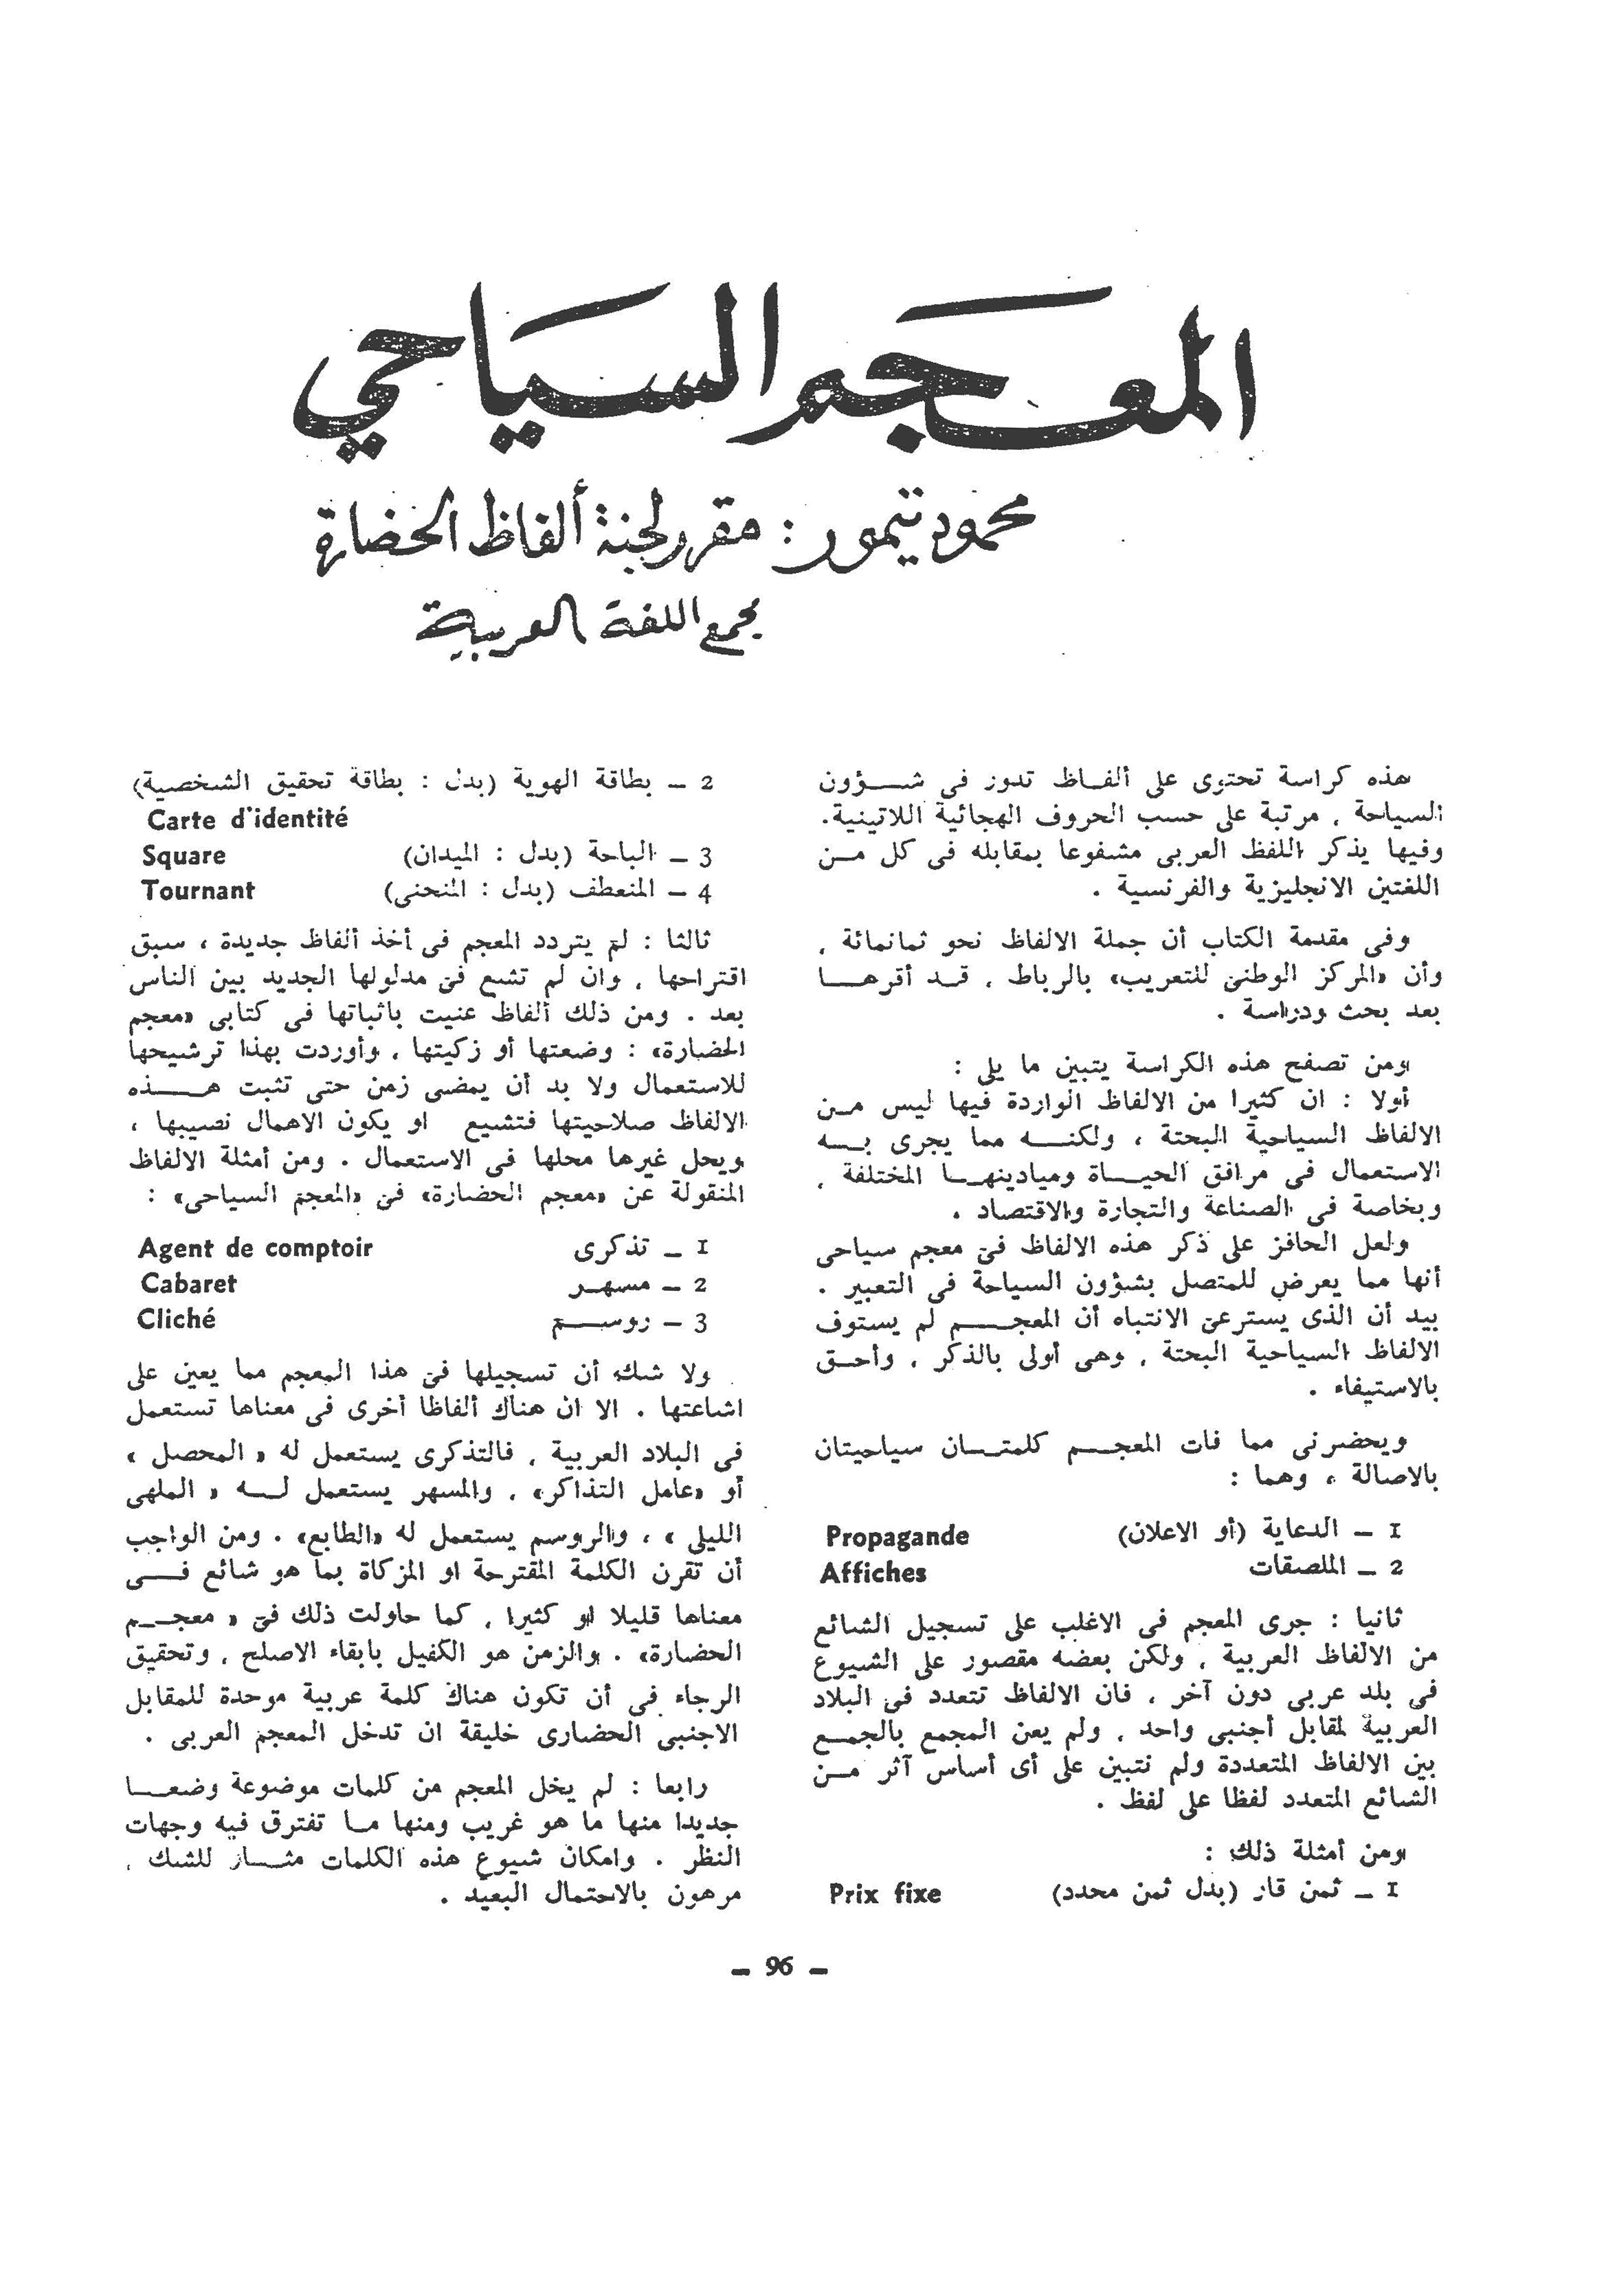 المعجم السياحي
محمود تيمور : مقرر لجنة ألفاظ الحضارة
بمجمع اللغة العربية
هذه كراسة تحتوى على ألفاظ تدور فى شؤون
السياحة ، مرتبة على حسب الحروف الهجائية اللاتينية.
وفيها يذكر اللفظ العربى مشفوعا بمقابله فى كل من
اللغتين الانجليزية والفرنسية .
وفى مقدمة الكتاب أن جملة الالفاظ نحو ثمانمائة ،
وأن «المركز الوطنى للتعريب» بالرباط ، قد أقرها
بعد بحث ودراسة .
ومن تصفح هذه الكراسة يتبين ما يلى :
أولا : ان كثيرا من الالفاظ الواردة فيها ليس من
الالفاظ السياحية البحتة ، ولكنه مما يجرى به
الاستعمال فى مرافق الحياة وميادينها المختلفة ،
وبخاصة فى الصناعة والتجارة والاقتصاد .
ولعل الحافز على ذكر هذه الالفاظ فى معجم سياحى
أنها مما يعرض للمتصل بشؤون السياحة فى التعبير .
بيد أن الذى يسترعى الانتباه أن المعجم لم يستوف
الالفاظ السياحية البحتة ، وهى أولى بالذكر ، وأحق
بالاستيفاء .
ويحضرنى مما فات المعجم كلمتان سياحيتان
بالاصالة ، وهما :
1 – الدعاية (أو الاعلان) Propagande
2 – الملصقات Affiches
ثانيا : جرى المعجم فى الاغلب على تسجيل الشائع
من الالفاظ العربية ، ولكن بعضه مقصور على الشيوع
فى بلد عربى دون آخر ، فان الالفاظ تتعدد فى البلاد
العربية لمقابل أجنبى واحد ، ولم يعن المجمع بالجمع
بين الالفاظ المتعددة ولم نتبين على أى أساس آثر من
الشائع المتعدد لفظا على لفظ .
ومن أمثلة ذلك :
1 – ثمن قار (بدل ثمن محدد) Prix fixe
2 – بطاقة الهوية (بدل : بطاقة تحقيق الشخصية)
Carte d'identité
3 – الباحة (بدل : الميدان) Square
4 – المنعطف (بدل : المنحنى) Tournant
ثالثا : لم يتردد المعجم فى أخذ ألفاظ جديدة ، سبق
اقتراحها ، وان لم تشع فى مدلولها الجديد بين الناس
بعد . ومن ذلك ألفاظ عنيت باثباتها فى كتابى «معجم
الحضارة» : وضعتها أو زكيتها ، وأوردت بهذا ترشيحها
للاستعمال ولا بد أن يمضى زمن حتى تثبت هذه
الالفاظ صلاحيتها فتشيع او يكون الاهمال نصيبها ،
ويحل غيرها محلها فى الاستعمال . ومن أمثلة الالفاظ
المنقولة عن «معجم الحضارة» فى «المعجم السياحى» :
1 – تذكرى Agent de comptoir
2 – مسهر Cabaret
3 – روسم Cliché
ولا شك أن تسجيلها فى هذا المعجم مما يعين على
اشاعتها . الا ان هناك ألفاظا أخرى فى معناها تستعمل
فى البلاد العربية ، فالتذكرى يستعمل له « المحصل »
أو «عامل التذاكر» ، والمسهر يستعمل له « الملهى
الليلى » ، والروسم يستعمل له «الطابع» . ومن الواجب
أن تقرن الكلمة المقترحة او المزكاة بما هو شائع فى
معناها قليلا او كثيرا ، كما حاولت ذلك فى « معجم
الحضارة» . والزمن هو الكفيل بابقاء الاصلح ، وتحقيق
الرجاء فى أن تكون هناك كلمة عربية موحدة للمقابل
الاجنبى الحضارى خليقة ان تدخل المعجم العربى .
رابعا : لم يخل المعجم من كلمات موضوعة وضعا
جديدا منها ما هو غريب ومنها ما تفترق فيه وجهات
النظر . وامكان شيوع هذه الكلمات مثار للشك ،
مرهون بالاحتمال البعيد .
– 96 –